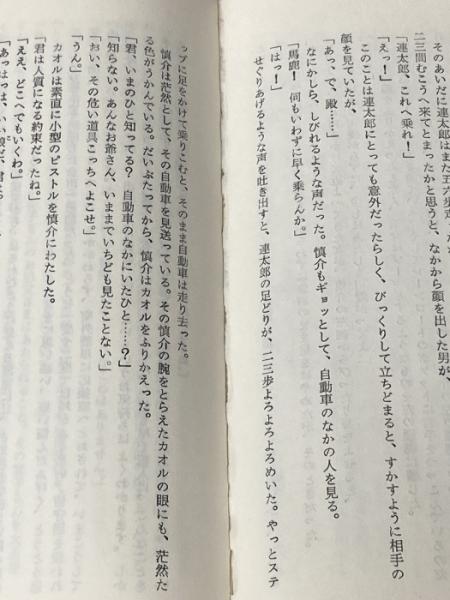 そのあいだに連太郎はまた五六歩
二三間むこうへ来てとまったかと思うと、なかから顔を出した男が、
「連太郎、これへ乗れ！」
「えっ！」
このことは連太郎にとっても意外だったらしく、びっくりして立ちどまると、すかすように相手の
顔を見ていたが、
「あっ、で、殿……」
なにかしら、しびれるような声だった。慎介もギョッとして、自動車のなかの人を見る。
「馬鹿！　何もいわずに早く乗らんか。」
「はっ！」
せぐりあげるような声を吐き出すと、連太郎の足どりが、二三歩よろよろよろめいた。やっとステ
ップに足をかけて乗りこむと、そのまま自動車は走り去った。
慎介は茫然として、その自動車を見送っている。その慎介の腕をとらえたカオルの眼にも、茫然た
る色がうかんでいる。だいぶたってから、慎介はカオルをふりかえった。
「君、いまのひと知ってる？　自動車のなかにいたひと……？」
「知らない。あんなお爺さん、いままでいちども見たことない。」
「おい、その危い道具こっちへよこせ。」
「うん。」
カオルは素直に小型のピストルを慎介にわたした。
「君は人質になる約束だったね。」
「ええ、どこへでもいくわ。」
「あっはっは、いい